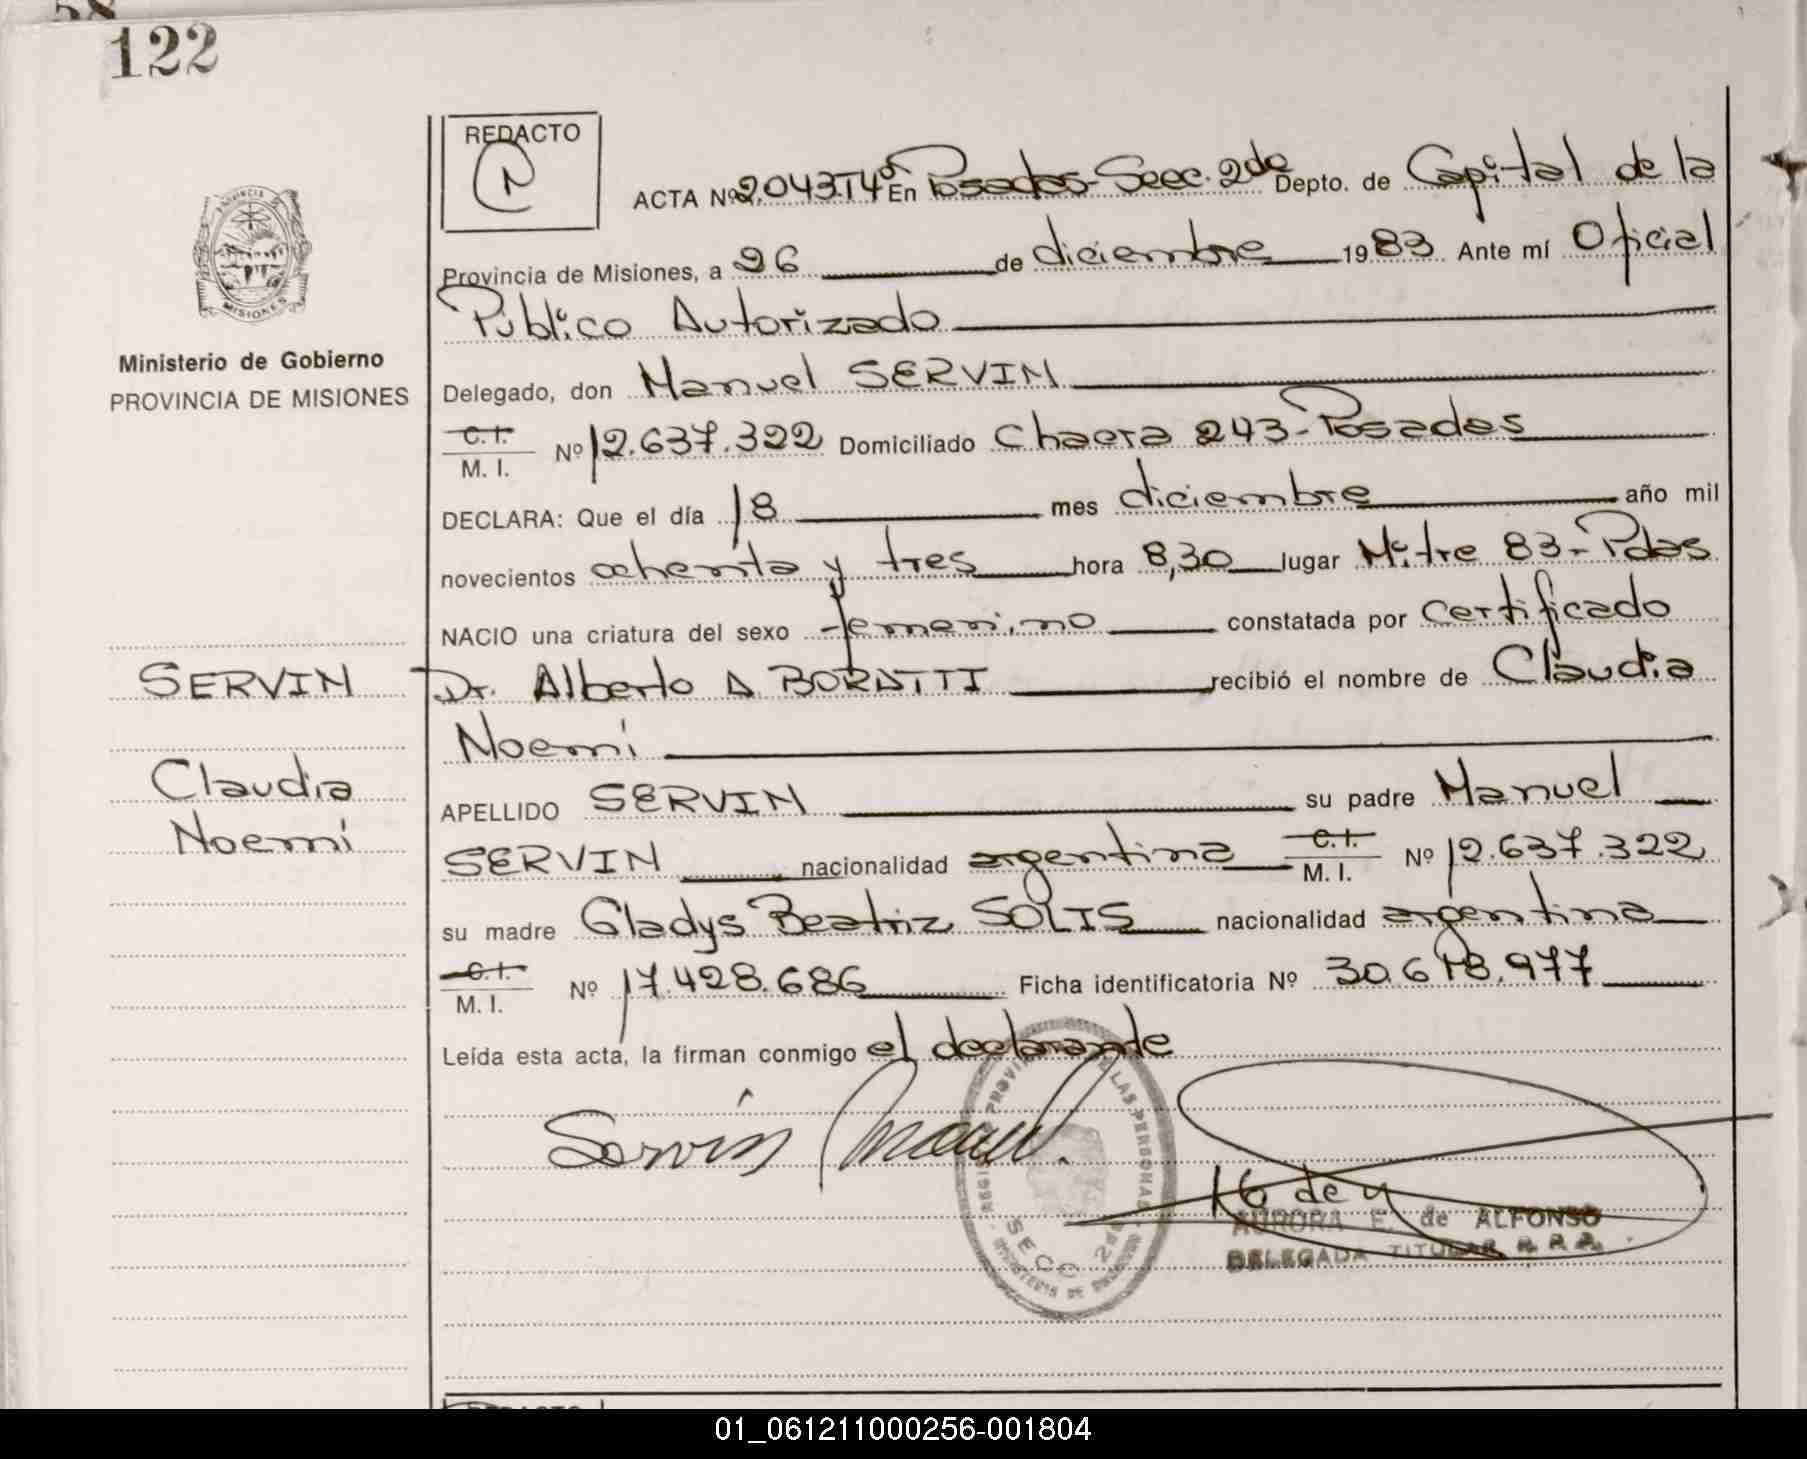 122
REDACTO
ACTA Nº 2.043 Tº 4º En Posadas - Secc. 2da Depto. de Capital de la
Provincia de Misiones, a 26 de diciembre 1983. Ante mí Oficial
Público Autorizado
Delegado, don Manuel SERVIN
C. I.
M. I. Nº 12.637.322 Domiciliado Chacra 243 - Posadas
DECLARA: Que el día 18 mes diciembre año mil
novecientos ochenta y tres hora 8,30 lugar Mitre 83 - Pdas
NACIO una criatura del sexo femenino constatada por certificado
Dr. Alberto A BORATTI recibió el nombre de Claudia
Noemí
APELLIDO SERVIN su padre Manuel
SERVIN nacionalidad argentina C. I.
M. I. Nº 12.637.322
su madre Gladys Beatriz SOLIS nacionalidad argentina
C. I.
M. I. Nº 17.428.686 Ficha identificatoria Nº 30.678.977
Leída esta acta, la firman conmigo el declarante
Servín Manuel.
AURORA E. de ALFONSO
DELEGADA TITULAR
PROVIN LAS PERSONAS
SECC 2da
PROVINCIA
MISIONES
Ministerio de Gobierno
PROVINCIA DE MISIONES
SERVIN
Claudia
Noemí
01_061211000256-001804